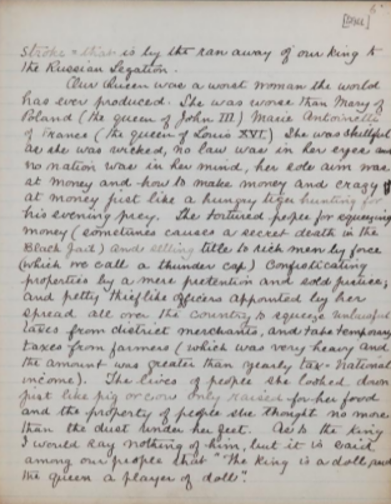 6
stroke - that is by the ran away of our king to
the Russian Legation.
Our Queen was a worst woman the world
has ever produced. She was worse than Mary of
Poland (the queen of John III) Marie Antoinette
of France (the queen of Louis XVI.) She was
as she was wicked, no law was in her eyes and
no nation was in her mind, her sole aim was
at money and how to make money and crazy
at money just like a hungry tiger hunting for
his evening prey. She tortured people for squeezing
money (sometimes causes a secret death in the
Black Jail) and selling title to rich men by force
(which we call a thunder cap) Confisticating
properties by a mere pretention and sold justice;
and petty thieflike officers appointed by her
spread all over the country to squeeze unlawful
taxes from district merchants, and take temporary
taxes from farmers (which was very heavy and
the amount was greater than yearly tax - national
income). The lives of people she looked down
just like pig or cow only raised for her food
and the property of people she thought no more
than the dust under her feet. As to the King
I would say nothing of him, but it is said
among our people that "The King is a doll and
the queen a player of doll".